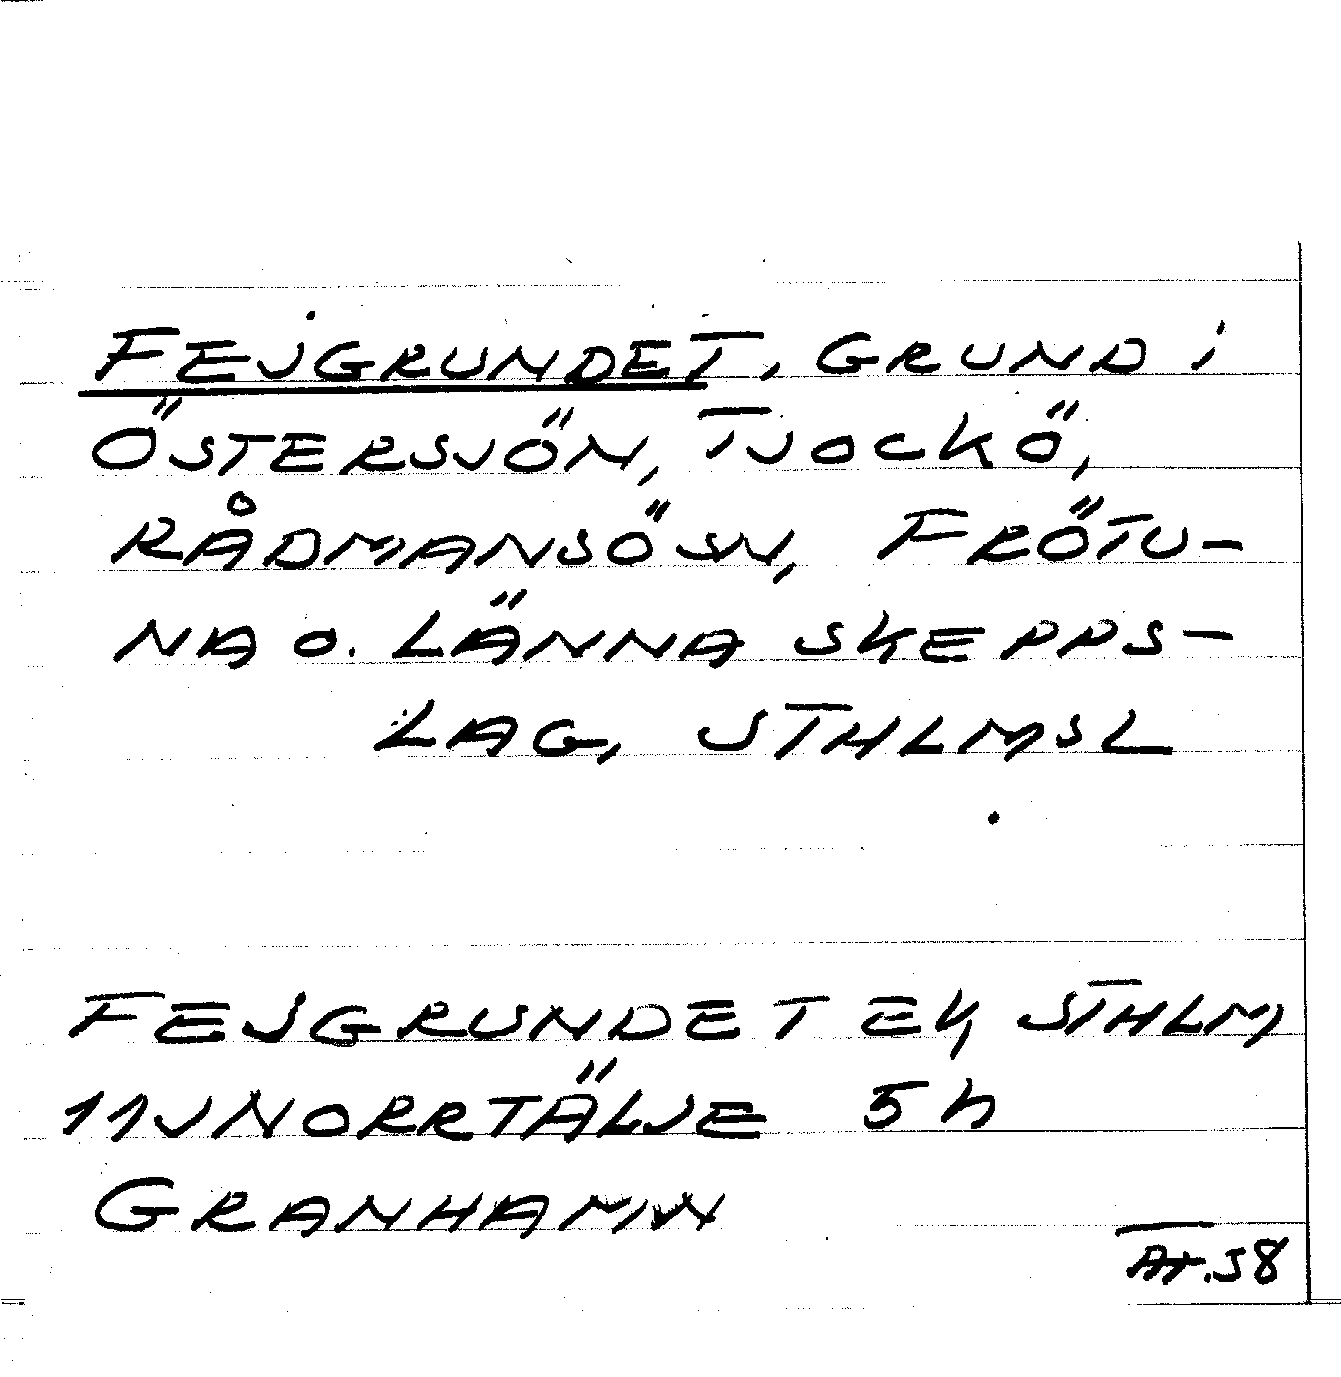 FEJGRUNDET, GRUND I
ÖSTERSJÖN, TJOCKÖ,
RÅDMANSÖ SN, FRÖTU-
NA O. LÄNNA SKEPPS-
LAG, STHLMSL
FEJGRUNDET EK, STHLM,
11J NORRTÄLJE 5h
GRANHAMN